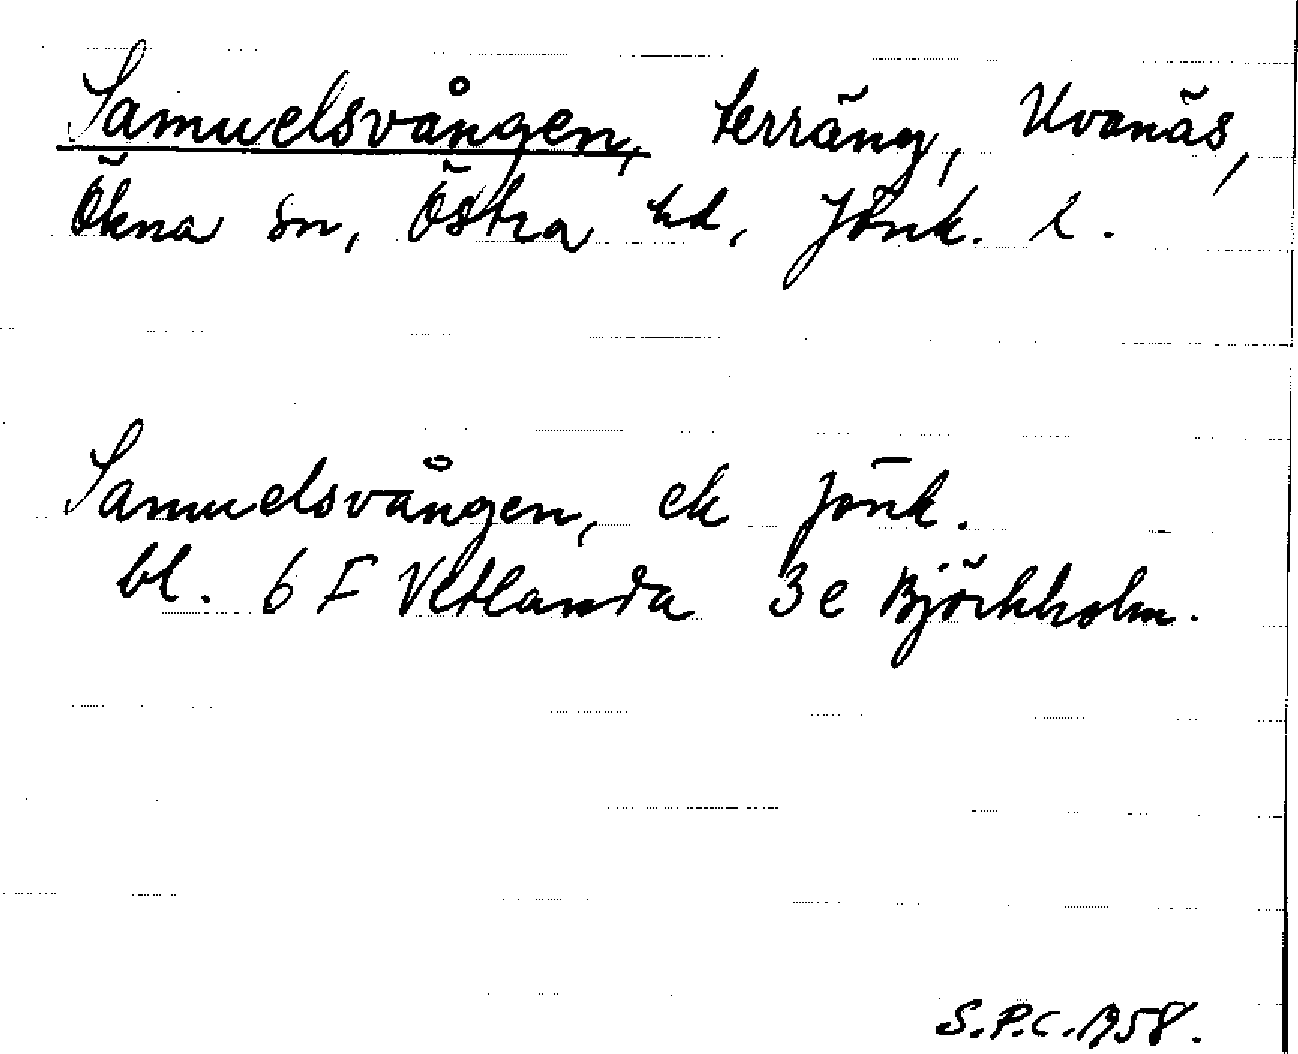 Samuelsvången, terräng, Uvanäs,
Ökna sn, Östra hd, Jönk. l.
Samuelsvången, ek Jönk.
bl. 6 F Vetlanda 3 e Björkholm.
S.P.C. 1958.